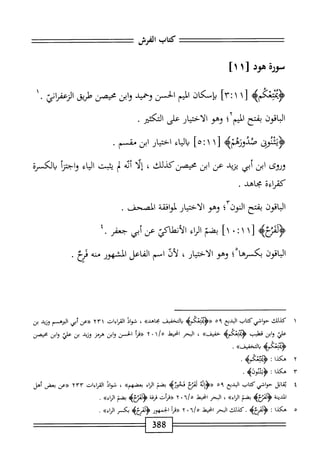 كتاب الفرش
سورة هود [١١]
﴿يُمْتِعْكُم﴾ [٣:١١] بإسكان الميم الحسن وحميد وابن محيصن طريق الزعفرانيّ .١
الباقون بفتح الميم٢؛ وهو الاختيار على التكثير .
﴿يَثْنُونِى صُدُورَهُمْ﴾ [٥:١١] بالياء اختيار ابن مقسم .
وروى ابن أبي يزيد عن ابن محيصن كذلك ، إلّا أنّه لم يثبت الياء واجتزأ بالكسرة
كقراءة مجاهد .
الباقون بفتح النون٣؛ وهو الاختيار لموافقة المصحف .
﴿لَفَرُحٌ﴾ [١٠:١١] بضمّ الراء الأنطاكيّ عن أبي جعفر .٤
الباقون بكسرها٥؛ وهو الاختيار ، لأنّ اسم الفاعل المشهور منه فَرِحٌ .
١ كذلك حواشي كتاب البديع ٥٩ «﴿يُمْتِعْكُم﴾ بالتخفيف مجاهد» ، شواذّ القراءات ٢٣١ «عن أبي البرهسم وزيد بن
عليّ وابن قطيب ﴿يُمْتِعْكُم﴾ خفيف» ، البحر المحيط ٢٠٦/٥ «قرأ الحسن وابن هرمز وزيد بن عليّ وابن محيصن
﴿يُمْتِعْكُم﴾ بالتخفيف» .
٢ هكذا : ﴿يُمَتِّعْكُم﴾ .
٣ هكذا : ﴿يَثْنُونَ﴾ .
٤ يُقابل حواشي كتاب البديع ٥٩ «﴿إِنَّهُ لَفَرُحٌ فَخُورٌ﴾ بضمّ الراء بعضهم» ، شواذّ القراءات ٢٣٣ «عن بعض أهل
المدينة ﴿لَفَرُحٌ﴾ بضمّ الراء» ، البحر المحيط ٢٠٦/٥ «قرأت فرقة ﴿لَفَرُحٌ﴾ بضمّ الراء» .
٥ هكذا : ﴿لَفَرِحٌ﴾ . كذلك البحر المحيط ٢٠٦/٥ «قرأ الجمهور ﴿لَفَرِحٌ﴾ بكسر الراء» .
388